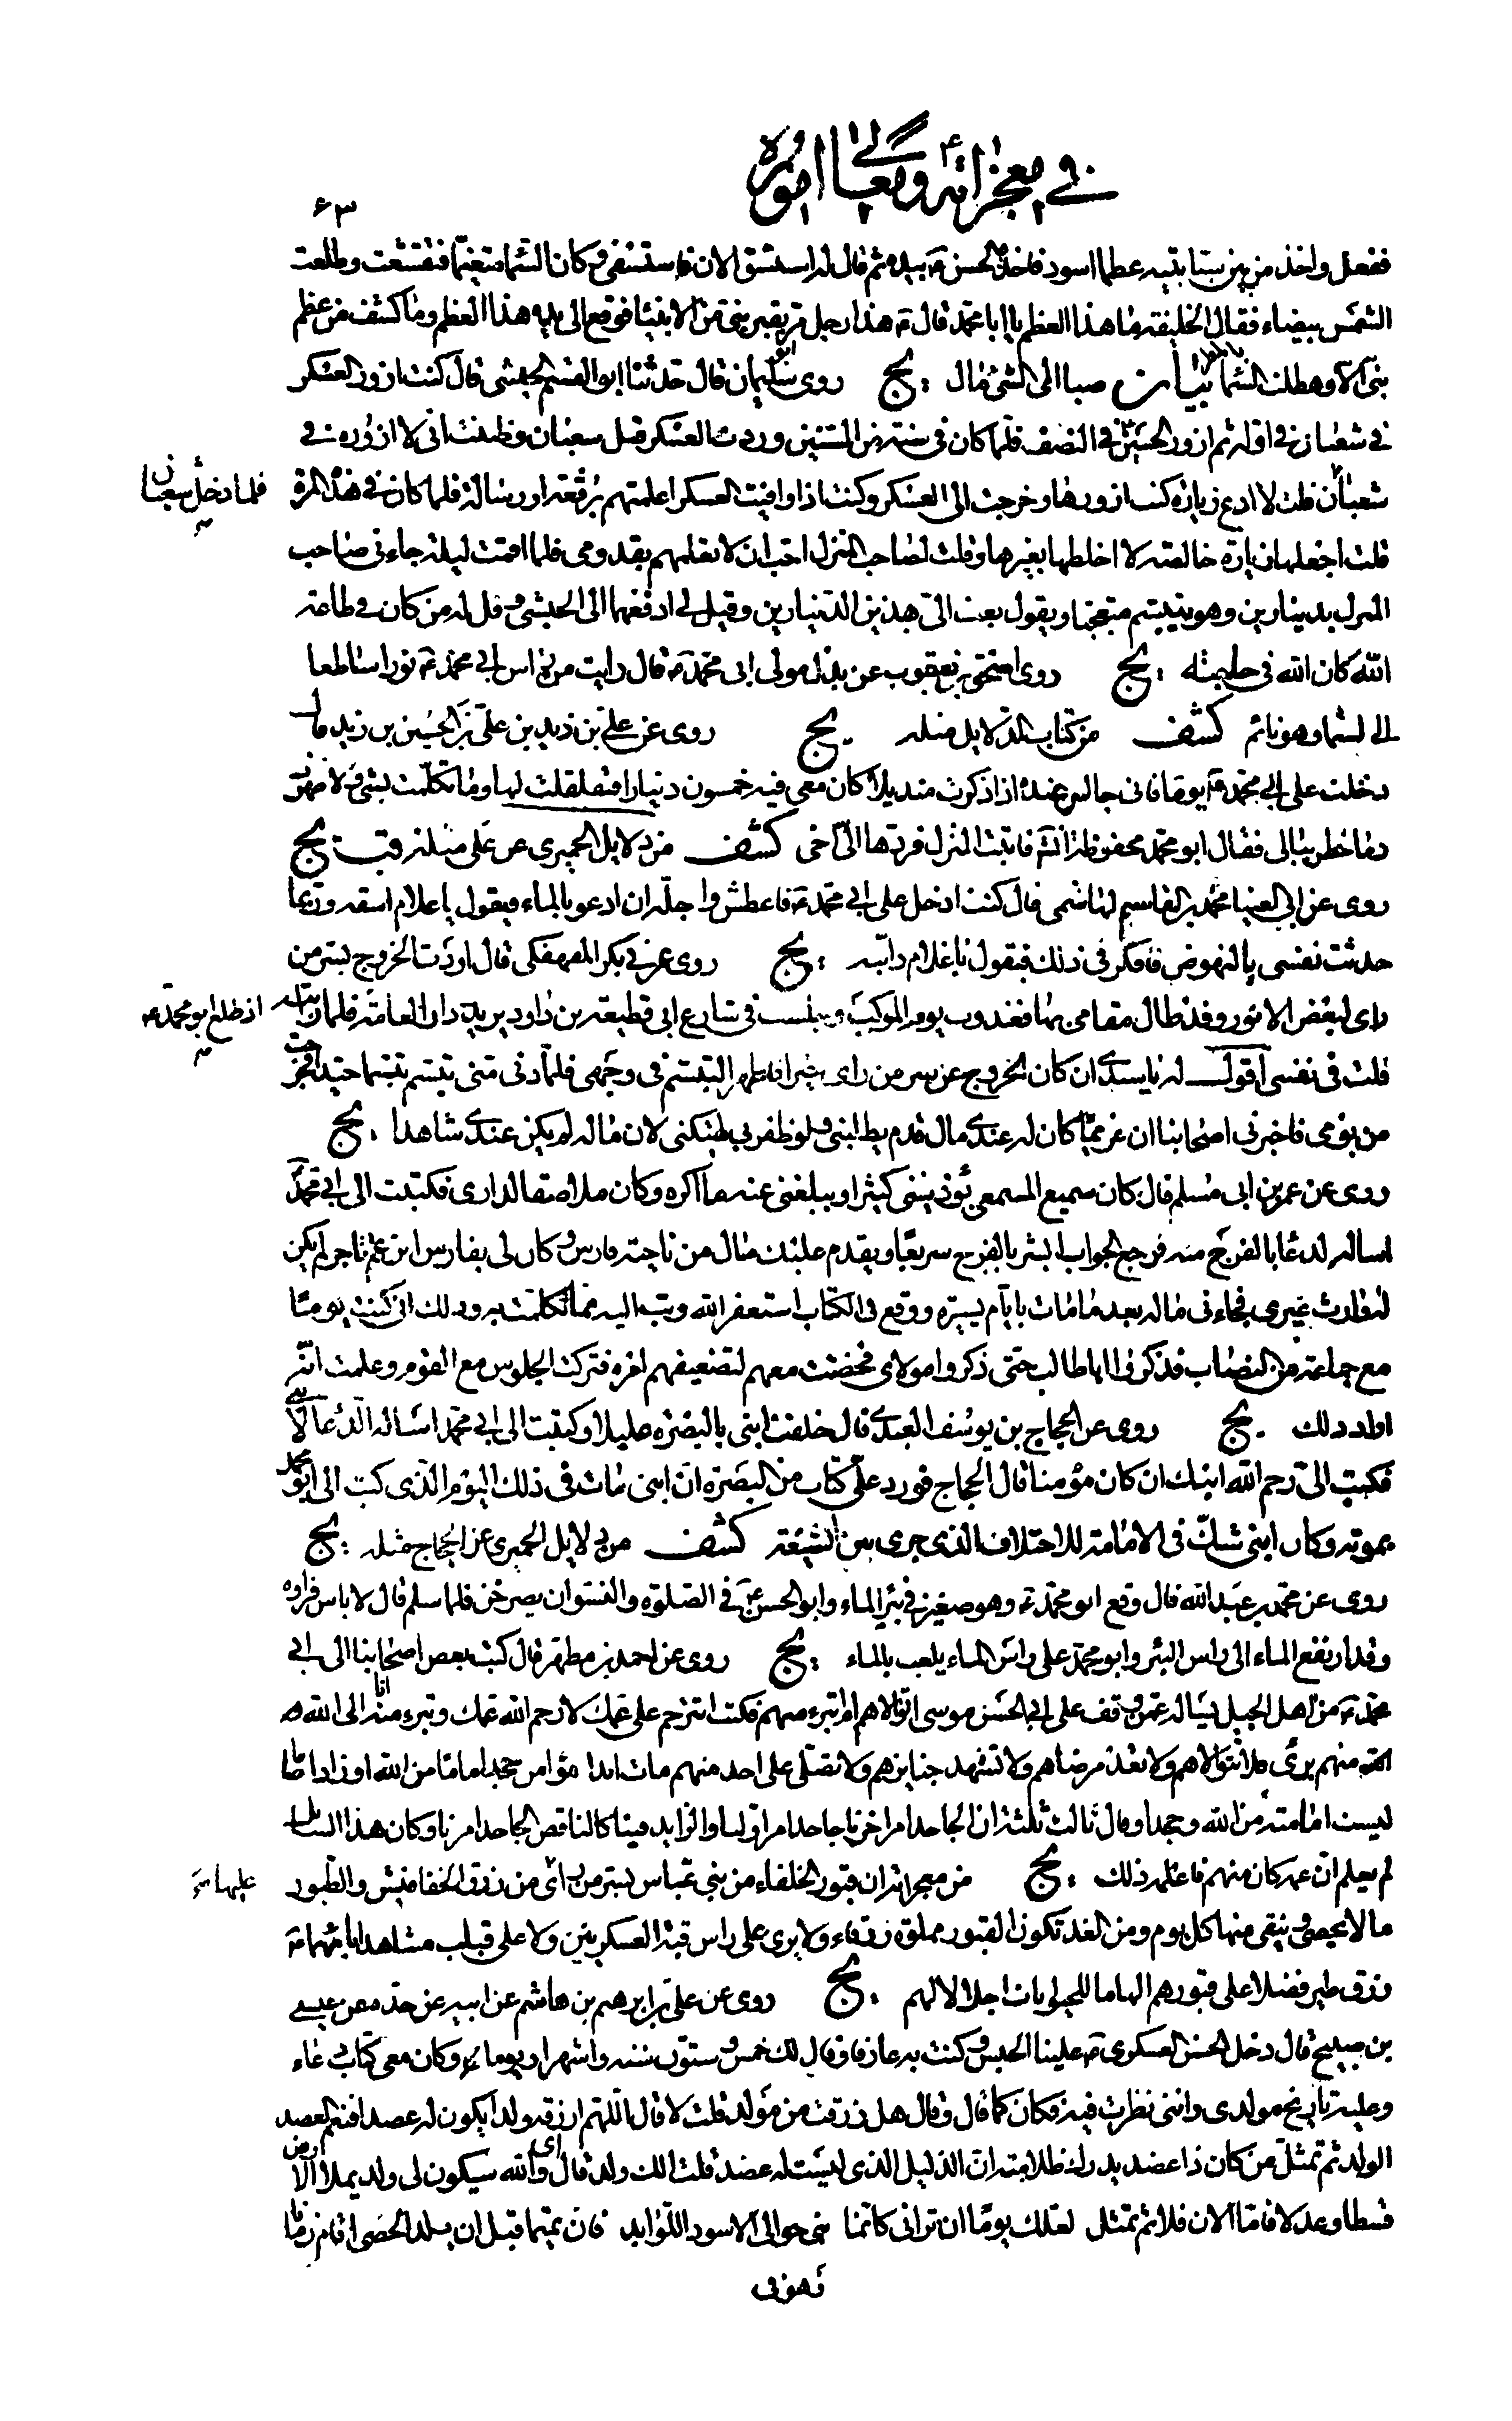 في معجزاته ومعالي اموره
٦٣
ففعل واخذ من بين سبابتيه عظما اسود فاخذ الحسن ع بيده ثم قال له استسق الان فاستسقى وكان السماء متغيما فتقشعت وطلعت
الشمس بيضاء فقال الخليفة ما هذا العظم يا ابا محمد قال ع هذا رجل مر بقبر نبي من الانبياء فوقع الى يده هذا العظم وما كشف من عظم
نبي الا وهطلت السماء بالمطر بيان صبا الى الشيء مال . يج روى ابو سليمان قال حدثنا ابو القسم الحبشي قال كنت ازور العسكر
في شعبان في اوله ثم ازور الحسين ع في النصف فلما كان في سنة من السنين وردت العسكر قبل شعبان وظننت اني لا ازوره في
شعبان فلما دخل شعبان قلت لا ادع زيارة كنت ازورها وخرجت الى العسكر وكنت اذا وافيت العسكر اعلمتهم برقعة او رسالة فلما كان في هذه المرة
قلت اجعلها زيارة خالصة لا اخلطها بغيرها وقلت لصاحب المنزل احب ان لا تعلمهم بقدومي فلما اقمت ليلة جاءني صاحب
المنزل بدينارين وهو يتبسم متعجبا ويقول بعث الي بهذين الدينارين وقيل لي ادفعهما الى الحبشي وقل له من كان في طاعة
الله كان الله في حاجته . يج روى اسحق بن يعقوب عن بذل مولى ابي محمد ع قال رايت من راس ابي محمد ع نورا ساطعا
الى السماء وهو نائم كشف من كتاب الدلايل مثله . يج روى عن علي بن زيد بن علي بن الحسين بن زيد قال
دخلت على ابي محمد ع يوما فاني جالس عنده اذ ذكرت منديلا كان معي فيه خمسون دينارا فتقلقلت لها وما تكلمت بشيء ولا اظهرت
ما خطر ببالي فقال ابو محمد محفوظة انشاء الله فاتيت المنزل فردها الي اخي كشف من دلايل الحميري عن علي مثله يج
روى عن ابي العينا محمد بن القاسم الهاشمي قال كنت ادخل على ابي محمد ع فاعطش واجله ان ادعو بالماء فيقول يا غلام اسقه وربما
حدثت نفسي بالنهوض فافكر في ذلك فيقول يا غلام دابته . يج روى عن ابي بكر الفهفكي قال اردت الخروج بسر من
راى لبعض الامور وقد طال مقامي بها فغدوت يوم الموكب وجلست في شارع ابي قطيعة بن داود اذ طلع ابو محمد ع يريد دار العامة فلما رايته
قلت في نفسي اقول له يا سيدي ان كان الخروج عن سر من راى خيرا فاظهر التبسم في وجهي فلما دنى مني تبسم تبسما جيدا فخرجت
من يومي فاخبرني اصحابنا ان غريما كان له عندي مال قدم يطلبني ولو ظفر بي يهتكني لان ماله لم يكن عندي شاهدا . يج
روى عن عمر بن ابي مسلم قال كان سميع المسمعي يؤذيني كثيرا ويبلغني عنه ما اكره وكان ملاصقا لداري فكتبت الى ابي محمد
اساله الدعا بالفرج منه فرجع الجواب ابشر بالفرج سريعا ويقدم عليك مال من ناحية فارس وكان لي بفارس ابن عم تاجر لم يكن
له وارث غيري فجاءني ماله بعد ما مات بايام يسيرة ووقع في الكتاب استغفر الله وتب اليه مما تكلمت به وذلك اني كنت يوما
مع جماعة من النصاب فذكروا ابا طالب حتى ذكروا مولاي فخضت معهم لتضعيفهم امره فتركت الجلوس مع القوم وعلمت انه
اراد ذلك . يج روى عن الحجاج بن يوسف العبدي قال خلفت ابني بالبصرة عليلا وكتبت الى ابي محمد اساله الدعا لابني
فكتب الي رحم الله ابنك ان كان مؤمنا قال الحجاج فورد علي كتاب من البصرة ان ابني مات في ذلك اليوم الذي كتب الي ابو محمد
بموته وكان ابني شك في الامامة للاختلاف الذي جرى بين الشيعة كشف من دلايل الحميري عن الحجاج مثله . يج
روى عن محمد بن عبد الله قال وقع ابو محمد ع وهو صغير في بئر الماء وابو الحسن ع في الصلوة والنسوان يصرخن فلما سلم قال لا باس فراوه
وقد ارتفع الماء الى راس البئر وابو محمد على راس الماء يلعب بالماء . يج روى عن احمد بن مطهر قال كتب بعض اصحابنا الى ابي
محمد ع من اهل الجبل يساله عمن وقف على ابي الحسن موسى اتولاهم ام اتبرء منهم فكتب اتترحم على عمك لا رحم الله عمك وتبرء منه انا الى الله
منهم بريء فلا تتولاهم ولا تعد مرضاهم ولا تشهد جنايزهم ولا تصل على احد منهم مات ابدا من جحد اماما من الله او زاد اماما
ليست امامته من الله وجحد او قال ثالث ثلثة ان الجاحد امر اخرنا جاحد امر اولنا والزايد فينا كالناقص الجاحد امرنا وكان هذا السائل
لم يعلم ان عمه كان منهم فاعلمه ذلك . يج من معجزاته ان قبور الخلفاء من بني عباس بسر من راى عليها من زرق الخفافيش والطيور
ما لا يحصى وينقى منها كل يوم ومن الغد تكون القبور مملوة زرقا ولا يرى على راس قبة العسكريين ولا على قباب مشاهد ابائهما ع
زرق طير فضلا على قبورهم الهاما للحيوانات اجلالا لهم . يج روى عن علي بن ابرهيم بن هاشم عن ابيه عن جده عن عيسى
بن صبيح قال دخل الحسن العسكري ع علينا الحبس وكنت به عارفا وقال لك خمس وستون سنة واشهرا ويوما وكان معي كتاب دعاء
وعليه تاريخ مولدي وانني نظرت فيه فكان كما قال وقال هل رزقت من ولد قلت لا قال اللهم ارزقه ولدا يكون له عضدا فنعم العضد
الولد ثم تمثل من كان ذا عضد يدرك ظلامته ان الذليل الذي ليست له عضد قلت الك ولد قال اي والله سيكون لي ولد يملا الارض
قسطا وعدلا فاما الان فلا ثم تمثل لعلك يوما ان تراني كانما بني حوالي الاسود اللوابد فان تميما قبل ان يلد الحصى اقام زمانا